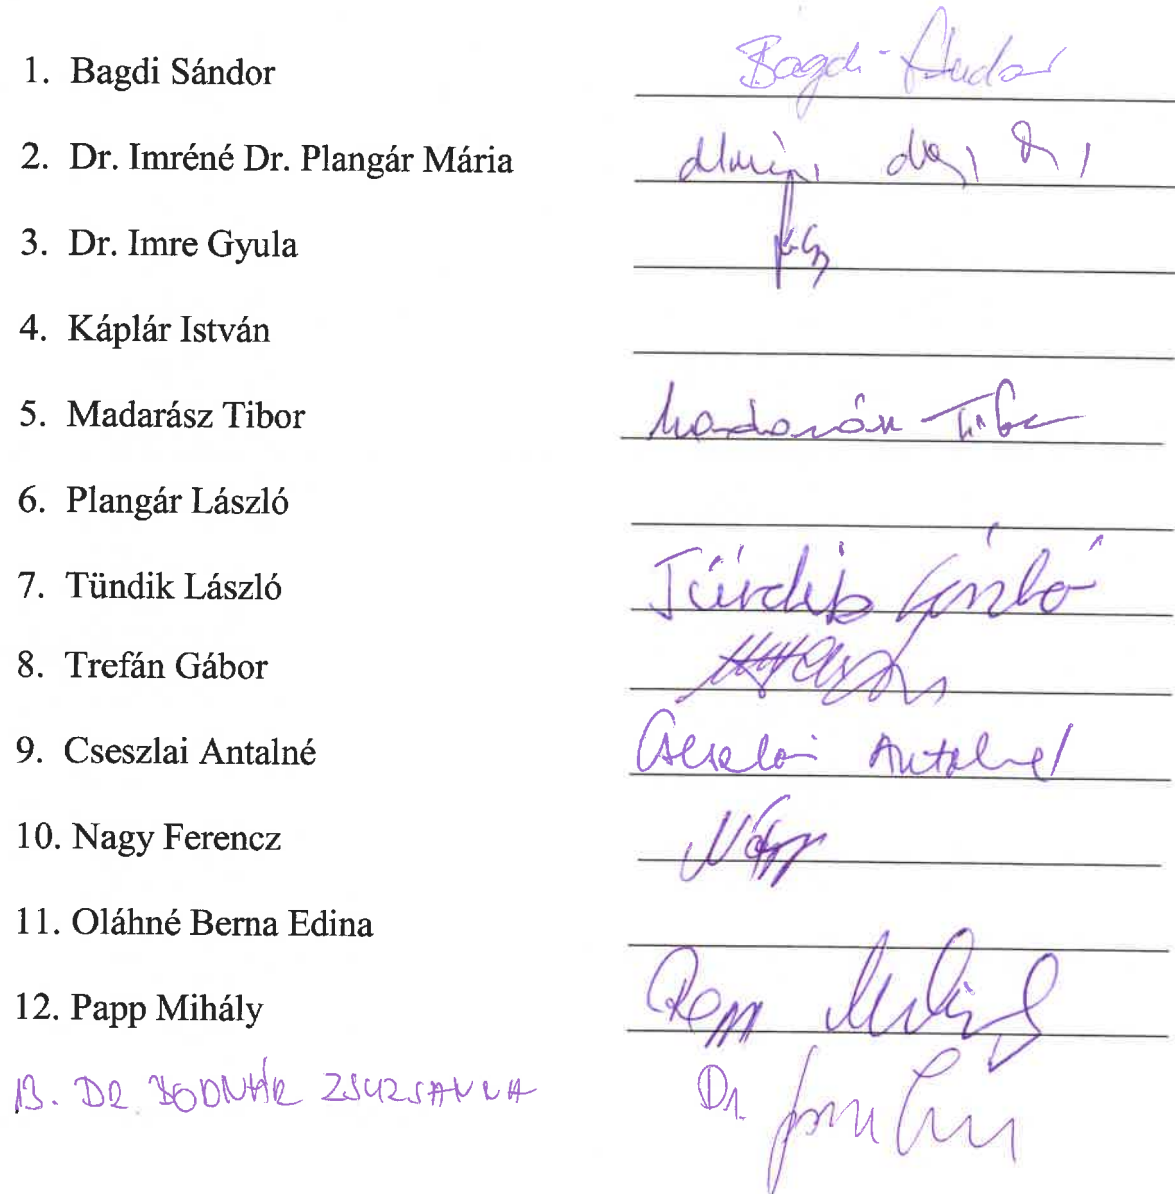 1. Bagdi Sándor Bagdi Sándor
2. Dr. Imréné Dr. Plangár Mária
3. Dr. Imre Gyula
4. Káplár István
5. Madarász Tibor Madarász Tibor
6. Plangár László
7. Tündik László Tündik László
8. Trefán Gábor
9. Cseszlai Antalné Cseszlai Antalné
10. Nagy Ferencz Nagy
11. Oláhné Berna Edina
12. Papp Mihály Papp Mihály
13. DR BODNÁR ZSUZSANNA Dr.